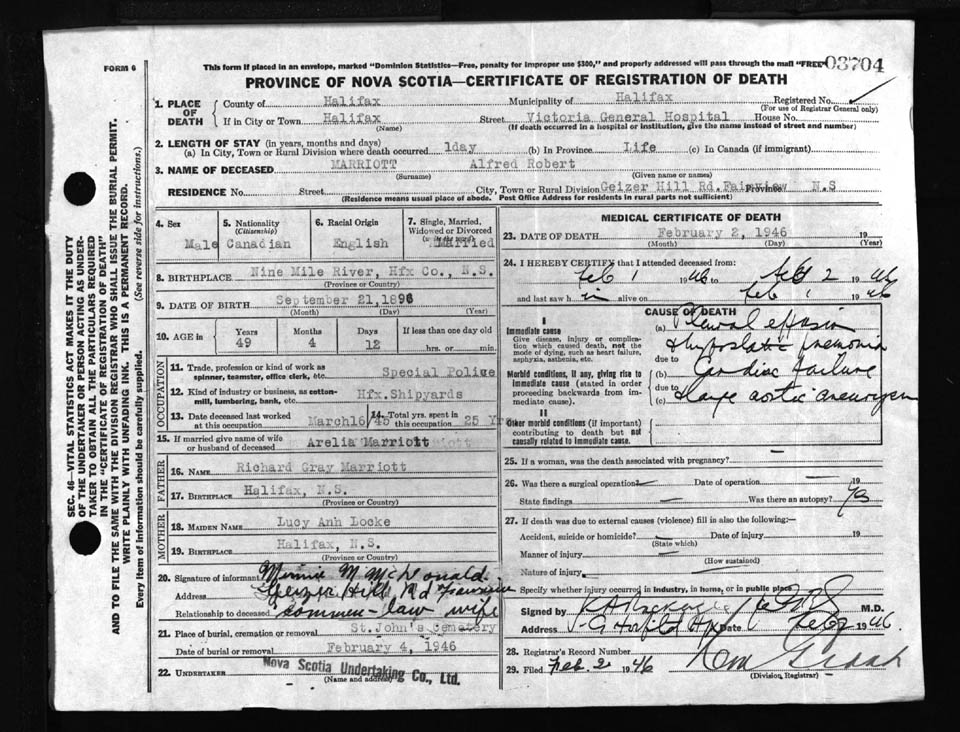 FORM 6
This form if placed in an envelope, marked "Dominion Statistics—Free, penalty for improper use $300," and properly addressed will pass through the mail "FREE"
03704
PROVINCE OF NOVA SCOTIA—CERTIFICATE OF REGISTRATION OF DEATH
1. PLACE OF DEATH
County of Halifax Municipality of Halifax Registered No.
(For use of Registrar General only)
If in City or Town Halifax Street Victoria General Hospital House No.
(Name) (If death occurred in a hospital or institution, give the name instead of street and number)
2. LENGTH OF STAY (in years, months and days)
(a) In City, Town or Rural Division where death occurred 1day (b) In Province Life (c) In Canada (if immigrant)
3. NAME OF DECEASED MARRIOTT Alfred Robert
(Surname) (Given name or names)
RESIDENCE No. Street City, Town or Rural Division Geizer Hill Rd. Fairview Province N.S
(Residence means usual place of abode. Post Office Address for residents in rural parts not sufficient)
4. Sex Male
5. Nationality (Citizenship) Canadian
6. Racial Origin English
7. Single, Married, Widowed or Divorced Married
8. BIRTHPLACE Nine Mile River, Hfx Co., N.S.
(Province or Country)
9. DATE OF BIRTH September 21,1896
(Month) (Day) (Year)
10. AGE in Years 49 Months 4 Days 12 If less than one day old hrs. or min.
OCCUPATION
11. Trade, profession or kind of work as spinner, teamster, office clerk, etc. Special Police
12. Kind of industry or business, as cotton-mill, lumbering, bank, etc. Hfx.Shipyards
13. Date deceased last worked at this occupation March16/45
14. Total yrs. spent in this occupation 25 Yrs
15. If married give name of wife or husband of deceased Arelia Marriott
FATHER
16. NAME Richard Gray Marriott
17. BIRTHPLACE Halifax, N.S.
(Province or Country)
MOTHER
18. MAIDEN NAME Lucy Ann Locke
19. BIRTHPLACE Halifax, N.S.
(Province or Country)
20. Signature of informant Minnie M McDonald
Address Geizer Hill Rd Fairview
Relationship to deceased common-law wife
21. Place of burial, cremation or removal St.John's Cemetery
Date of burial or removal February 4, 1946
22. UNDERTAKER Nova Scotia Undertaking Co., Ltd.
(Name and address)
MEDICAL CERTIFICATE OF DEATH
23. DATE OF DEATH February 2, 1946 19
(Month) (Day) (Year)
24. I HEREBY CERTIFY that I attended deceased from:
Feb 1 1946 to Feb 2 1946
and last saw h im alive on Feb 1 1946
CAUSE OF DEATH
I
Immediate cause
Give disease, injury or complication which caused death, not the mode of dying, such as heart failure, asphyxia, asthenia, etc.
(a) Pleural effusion
& hypostatic pneumonia
due to
Morbid conditions, if any, giving rise to immediate cause (stated in order proceeding backwards from immediate cause).
(b) Cardiac Failure
due to
(c) large aortic aneurysm
II
Other morbid conditions (if important) contributing to death but not causally related to immediate cause.
25. If a woman, was the death associated with pregnancy?
26. Was there a surgical operation? — Date of operation — 19
State findings — Was there an autopsy? yes
27. If death was due to external causes (violence) fill in also the following:—
Accident, suicide or homicide? — Date of injury 19
(State which)
Manner of injury —
(How sustained)
Nature of injury
Specify whether injury occurred in industry, in home, or in public place
Signed by M.D.
Address V-G Hospital Hfx Date Feb 2 1946.
28. Registrar's Record Number
29. Filed Feb. 2 1946
(Division Registrar)
SEC. 46—VITAL STATISTICS ACT MAKES IT THE DUTY OF THE UNDERTAKER OR PERSON ACTING AS UNDERTAKER TO OBTAIN ALL THE PARTICULARS REQUIRED IN THE "CERTIFICATE OF REGISTRATION OF DEATH" AND TO FILE THE SAME WITH THE DIVISION REGISTRAR WHO SHALL ISSUE THE BURIAL PERMIT.
WRITE PLAINLY WITH UNFADING INK. THIS IS A PERMANENT RECORD.
Every item of information should be carefully supplied. (See reverse side for instructions.)